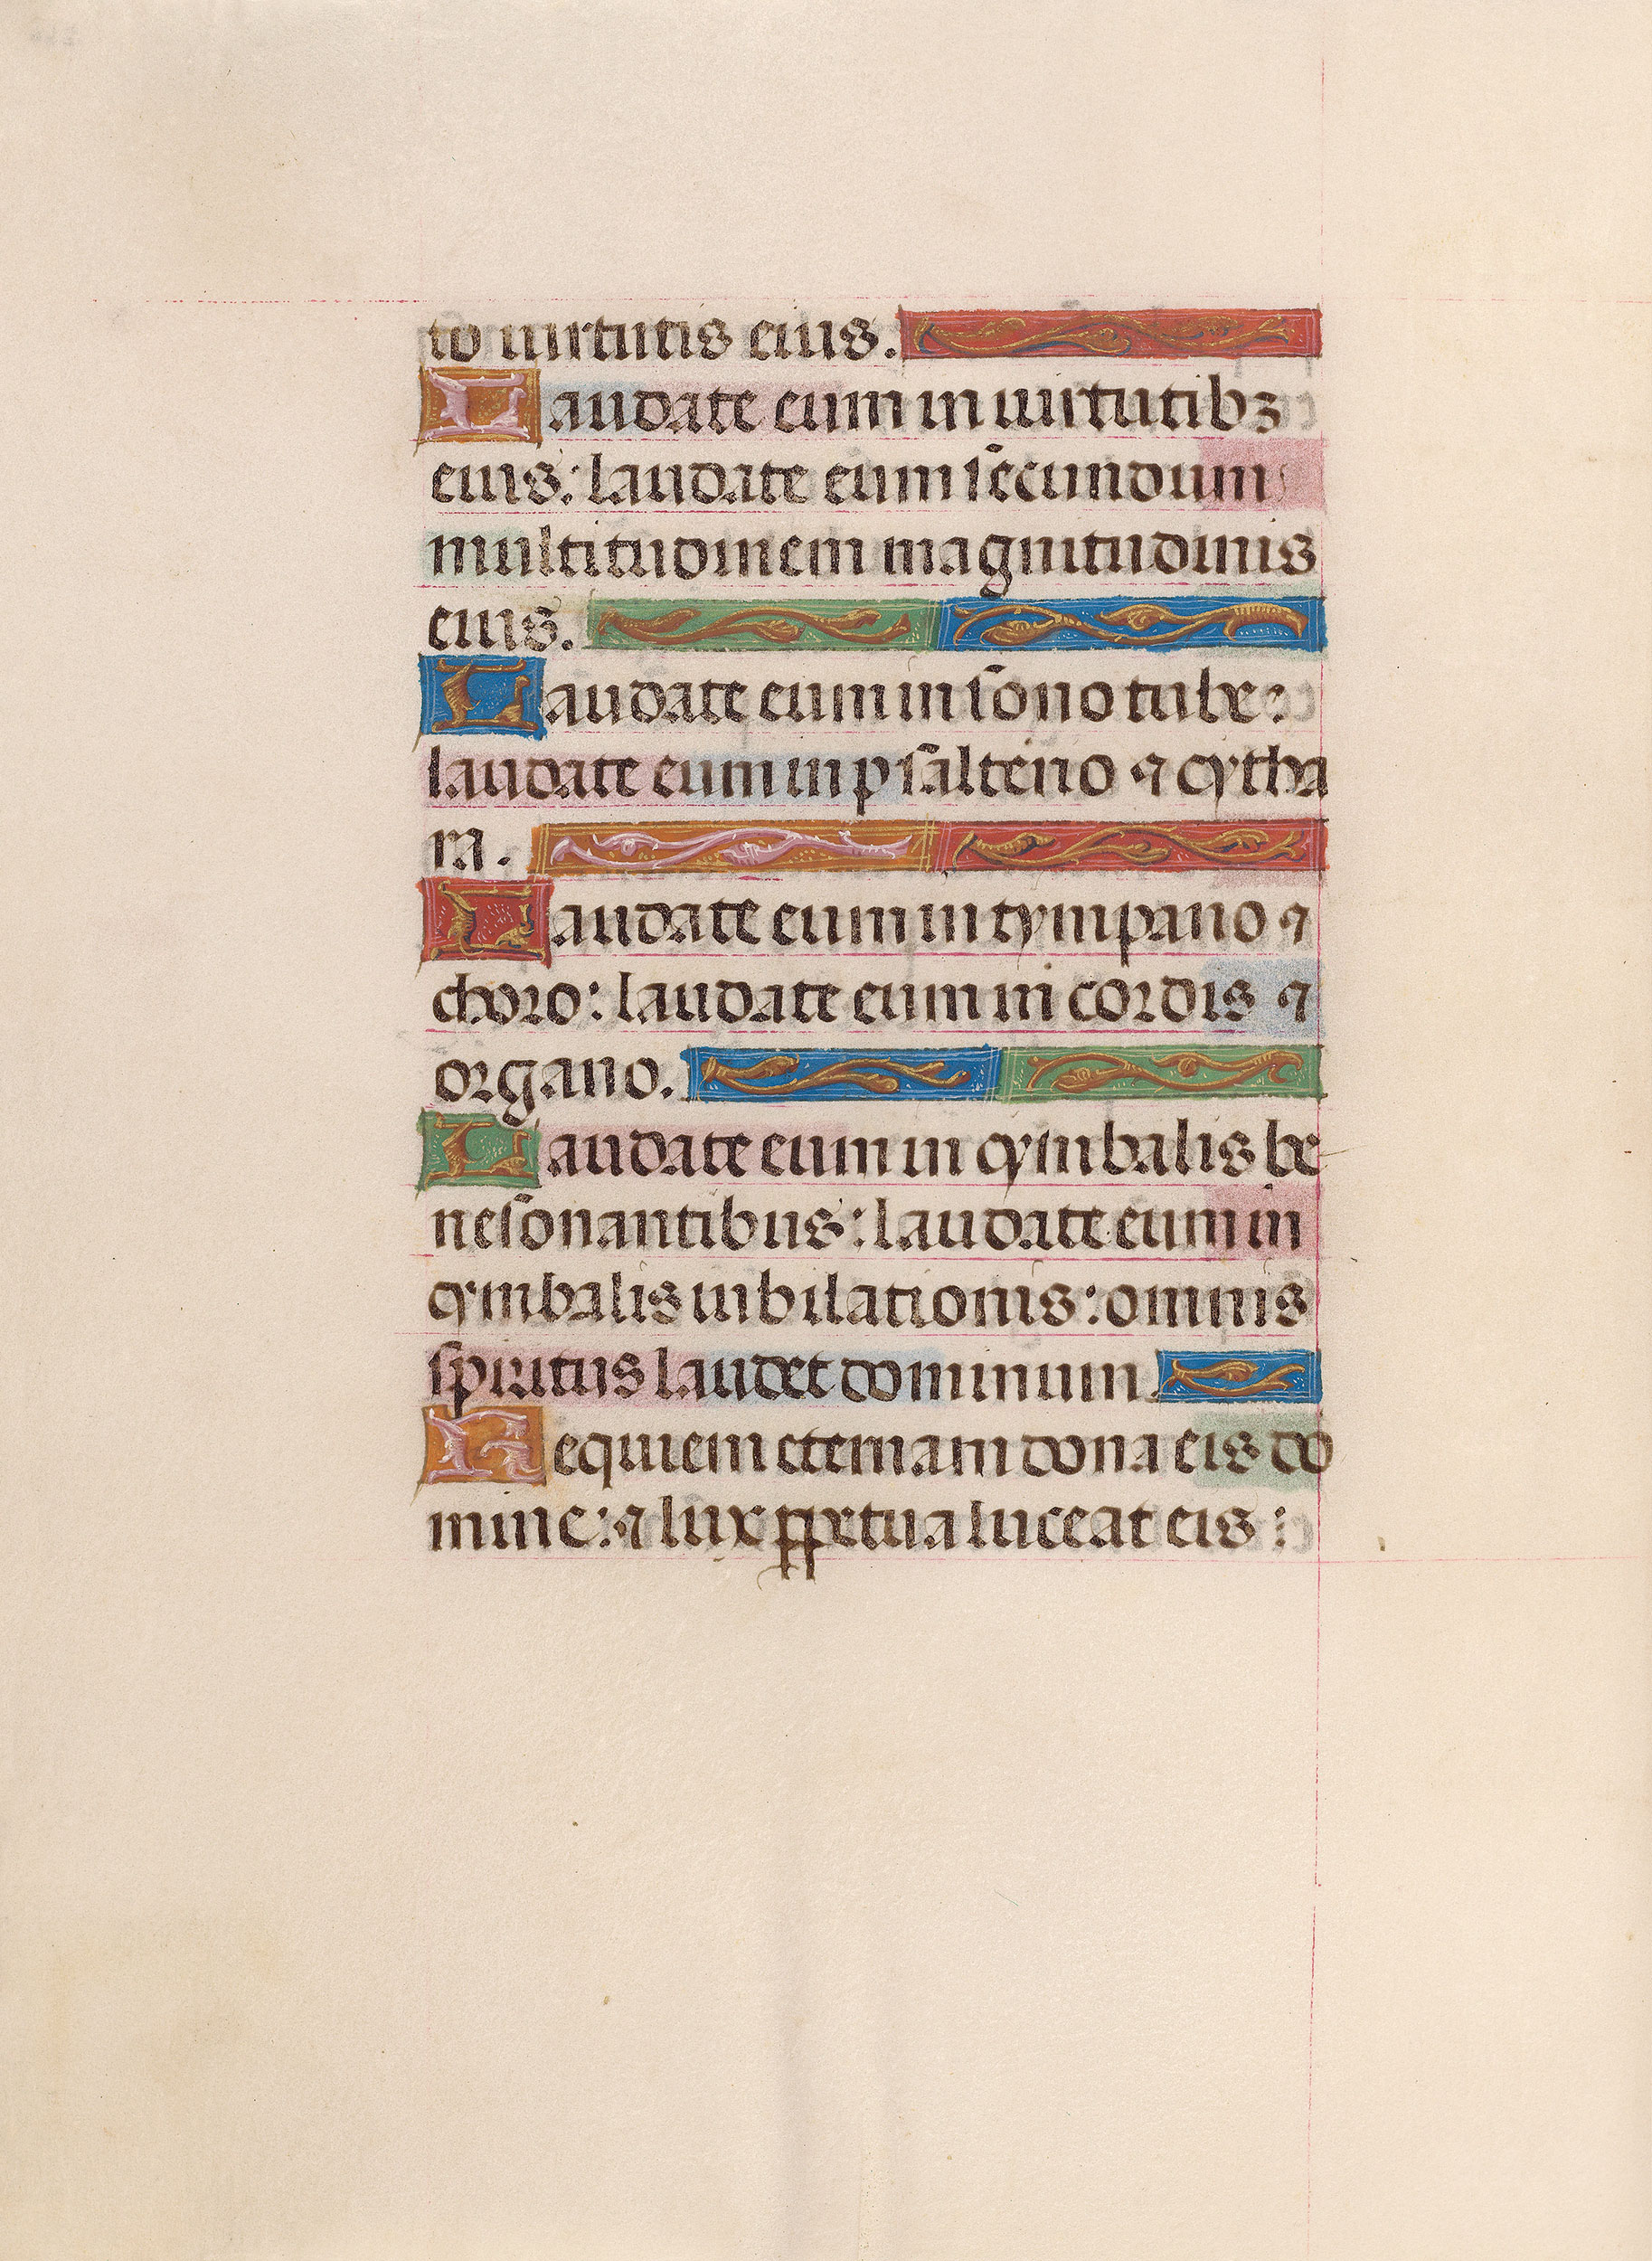 to uirtutis eius.
Laudate eum in uirtutibꝫ
eius: laudate eum secundum
multitudinem magnitudinis
eius.
Laudate eum in sono tube:
laudate eum in psalterio ⁊ cytha
ra.
Laudate eum in tympano ⁊
choro: laudate eum in cordis ⁊
organo.
Laudate eum in cymbalis be
nesonantibus: laudate eum in
cymbalis iubilationis: omnis
spiritus laudet dominum.
Requiem eternam dona eis do
mine: ⁊ lux ꝑpetua luceat eis: